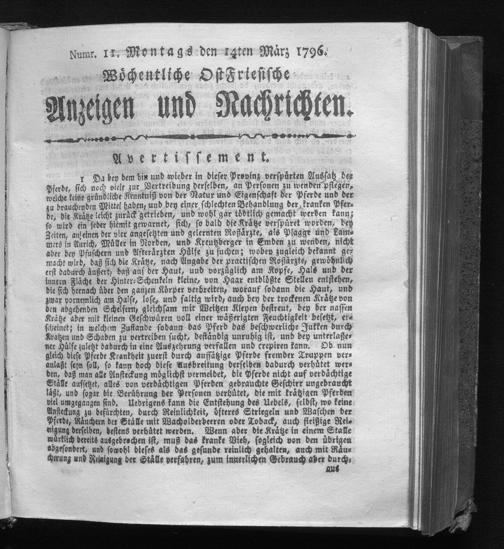 Numr. 11. Montags den 14ten März 1796.
Wöchentliche OstFriesische
Anzeigen und Nachrichten.
Avertissement.
1 Da bey dem hin und wieder in dieser Provinz verspürten Aussatz der
Pferde, sich noch viele zur Vertreibung derselben, an Personen zu wenden pflegen,
welche keine gründliche Kenntniß von der Natur und Eigenschaft der Pferde und der
zu brauchenden Mittel haben, und bey einer schlechten Behandlung der kranken Pfer-
de, die Krätze leicht zurück getrieben, und wohl gar tödtlich gemacht werden kann;
so wird ein jeder hiemit gewarnet, sich, so bald die Krätze verspüret worden, bey
Zeiten, an einen der vier angesetzten und gelernten Roßärzte, als Plagge und
mers in Aurich, Müller in Norden, und Kreutzberger in Emden zu wenden, nicht
aber bey Pfuschern und Afterärzten Hülfe zu suchen; wobey zugleich bekannt ge-
macht wird, daß sich die Krätze, nach Angabe der practischen Roßärzte, gewöhnlich
erst dadurch äußert, daß auf der Haut, und vorzüglich am Kopfe, Hals und der
innern Fläche der Hinter-Schenkeln kleine, von Haar entblößte Stellen entstehen,
die sich hernach über den ganzen Körper verbreiten, worauf sodann die Haut, und
zwar vornemlich am Halse, lose, und faltig wird, auch bey der trockenen Krätze von
den abgehenden Schelfern, gleichsam mit Weitzen Kleyen bestreut, bey der nassen
Krätze aber mit kleinen Geschwüren voll einer wäßerigten Feuchtigkeit besetzt, er-
scheinet; in welchem Zustande sodann das Pferd das beschwerliche Jukken durch
Kratzen und Schaben zu vertreiben sucht, beständig unruhig ist, und bey unterlasse-
ner Hülfe zuletzt dadurch in eine Auszehrung verfallen und crepiren kann. Ob nun
gleich diese Pferde Krankheit zuerst durch aussätzige Pferde fremder Truppen ver-
anlaßt seyn soll, so kann doch diese Ausbreitung derselben dadurch verhütet wer-
den, daß man alle Ansteckung möglichst vermeidet, die Pferde nicht auf verdächtige
Ställe aufsetzet, alles von verdächtigen Pferden gebrauchte Geschirr ungebraucht
läßt, und sogar die Berührung der Personen verhütet, die mit krätzigen Pferden
viel umgegangen sind. Uebrigens kann die Entstehung des Uebels, selbst, wo keine
Ansteckung zu befürchten, durch Reinlichkeit, öfteres Striegeln und Waschen der
Pferde, Räuchern der Ställe mit Wachholderbeeren oder Toback, auch fleißige Rei-
nigung derselben, bestens verhütet werden. Wenn aber die Krätze in einem Stalle
würklich bereits ausgebrochen ist, muß das kranke Vieh, sogleich von den übrigen
abgesondert, und sowohl dieses als das gesunde reinlich gehalten, auch mit Räu-
cherung und Reinigung der Ställe verfahren, zum innerlichen Gebrauch aber durch-
aus